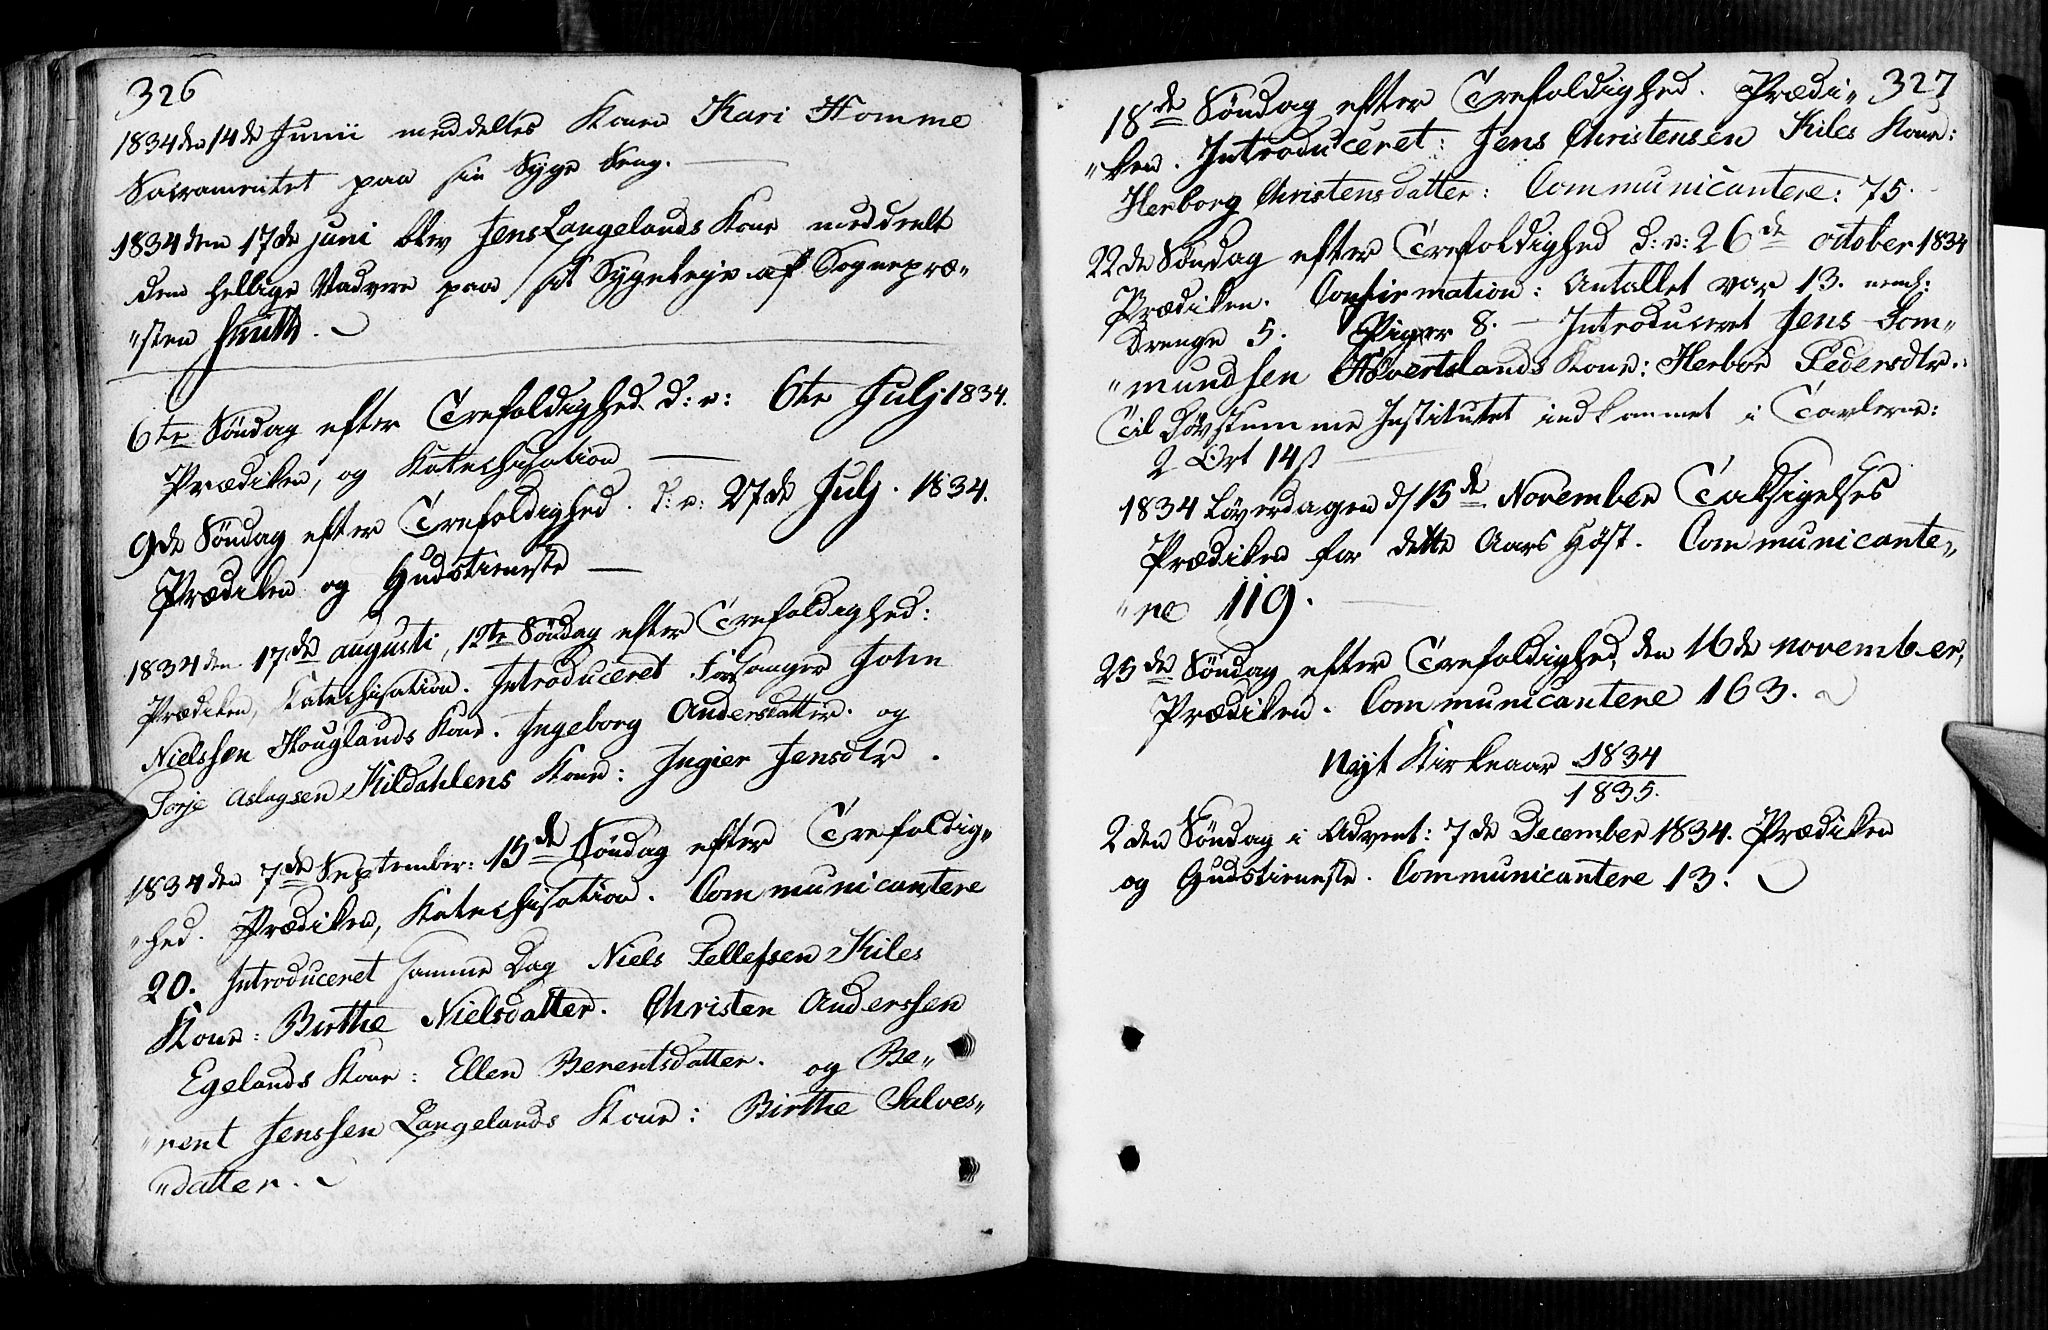 326
1834 den 14de Junii meddeltes Konen Kari Homme
Sacramentet paa sin Syge Seng.
1834 den 17de juni blev Jens Langelands Kone meddeelt
den hellige Nadvere paa sit Sygeleje af Sognepræ„
„sten Smith.
6te Søndag efter Trefoldighed d: e: 6te Julj 1834.
Prædiken, og Katechisation
9de Søndag efter Trefoldighed. d: e: 27de Julj. 1834.
Prædiken og Gudstieneste
1834 den 17de augusti, 12te Søndag efter Trefoldighed:
Prædiken, Katechisation. Introduceret Forsanger John
Nielssen Houglands Kone. Ingeborg Andersdatter. og
Torje Aslagsen Kildahlens Kone: Ingier Jensdtr.
1834 den 7de September: 15de Søndag efter Trefoldig„
„hed. Prædiken, Katechisation. Communicantere
20. Introduceret samme Dag Niels Tellefsen Kiles
Kone: Birthe Nielsdatter. Christen Anderssen
Egelands Kone: Ellen Berentsdatter. og Be„
„rent Jenssen Langelands Kone: Birthe Salves„
„datter.
327
18de Søndag efter Trefoldighed. Prædi„
„ken. Introduceret: Jens Christensen Kiles Kone:
Herborg Christensdatter: Communicantere: 75.
22de Søndag efter Trefoldighed d: e: 26de october 1834
Prædiken. Confirmation: Antallet var 13. neml:
Drenge 5. Piger 8. — Introduceret Jens Gom„
„mundsen Kones: Herbor Pedersdtr.
Til Døvstumme Institutet indkommet i Tavlerne:
2 Ort 14 ß
1834 Løverdagen d/ 15de November Taksigelses
Prædiken for dette Aars Høst. Communicante„
„re 119.
25de Søndag efter Trefoldighed, den 16de november,
Prædiken. Communicantere 163.
Nyt Kirkeaar 1834
1835.
2den Søndag i Advent: 7de December 1834. Prædiken
og Gudstieneste. Communicantere 13.